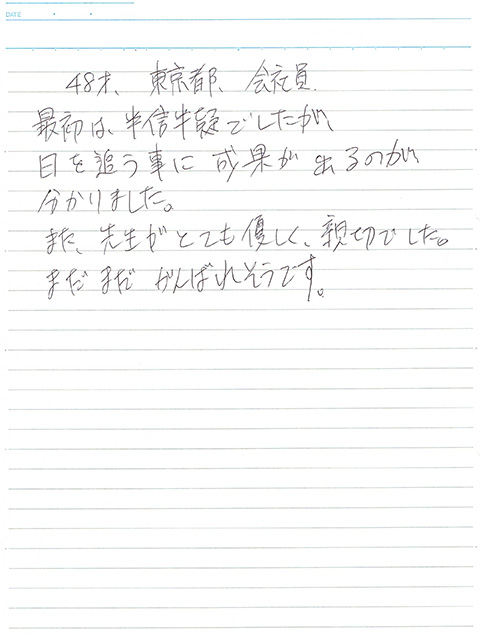 DATE
48才、東京都、会社員
最初は、半信半疑でしたが、
日を追う事に成果が出るのが、
分かりました。
また、先生がとても優しく、親切でした。
まだまだがんばれそうです。